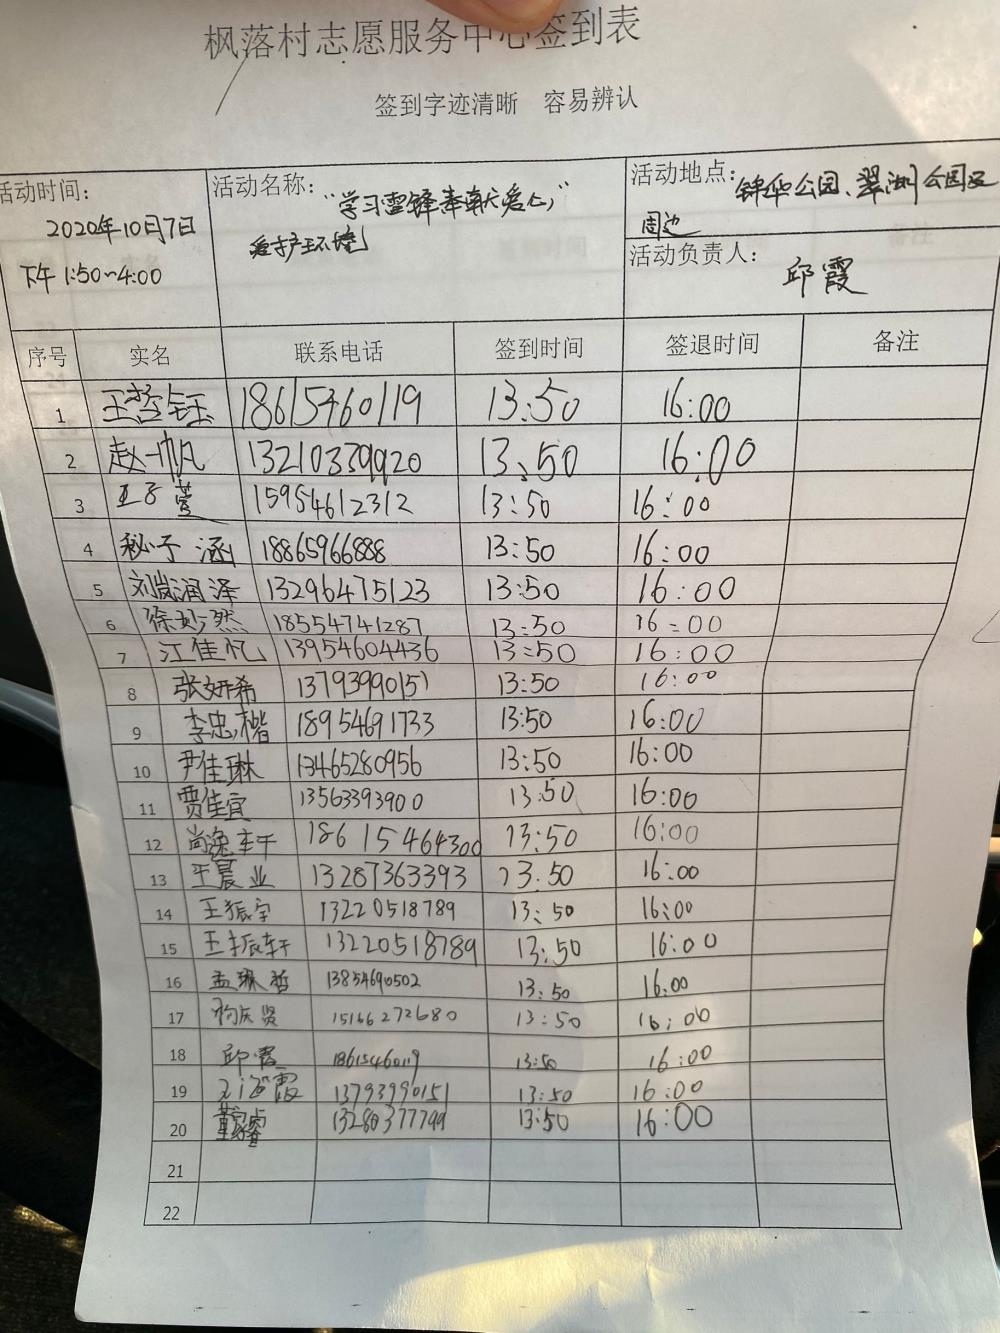 枫落村志愿服务中心签到表
签到字迹清晰 容易辨认
活动时间:
2020年10月7日
下午1:50~4:00
活动名称:"学习雷锋奉献爱心,"
爱护环境
活动地点:锦华公园、翠湖公园及
周边
活动负责人:
邱霞
序号 实名 联系电话 签到时间 签退时间 备注
1 王 钰 18615460119 13:50 16:00
2 赵一帆 13210379920 13:50 16:00
3 王子萱 15954612312 13:50 16:00
4 秘子涵 18865966888 13:50 16:00
5 刘岚润泽 13296475123 13:50 16:00
6 徐妙然 18554741287 13:50 16:00
7 江佳忆 13954604436 13:50 16:00
8 张妍希 13793990151 13:50 16:00
9 李忠楷 18954691733 13:50 16:00
10 尹佳琳 13465280956 13:50 16:00
11 贾佳宜 13563393900 13:50 16:00
12 尚逸轩 18615464300 13:50 16:00
13 王晨业 13287363393 13:50 16:00
14 王振宇 13220518789 13:50 16:00
15 王振轩 13220518789 13:50 16:00
16 孟琳哲 13854690502 13:50 16:00
17 15166272680 13:50 16:00
18 邱霞 18615460119 13:50 16:00
19 霞 13793990151 13:50 16:00
20 董 睿 13280377799 13:50 16:00
21
22